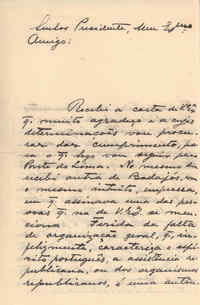 Senhor Presidente, Meu Exmo
Amigo:
Recebi a carta de V. Ex.ª
q. muito agradeço e a cujas
determinações vou procu-
rar dar cumprimento, pa-
ra o q. hoje vou seguir para
Ponte de Lima. No mesmo dia
recebi outra de Badajoz, com
o mesmo intuito, empresa,
um q. assinava uma das pes-
soas q. na de V. Ex. se men-
ciona. Ferida da falta
de organização geral, q., in-
felizmente, caracteriza o espí-
rito português, a assistencia re-
publicana, ou dos organismos
republicanos, é uma autên-